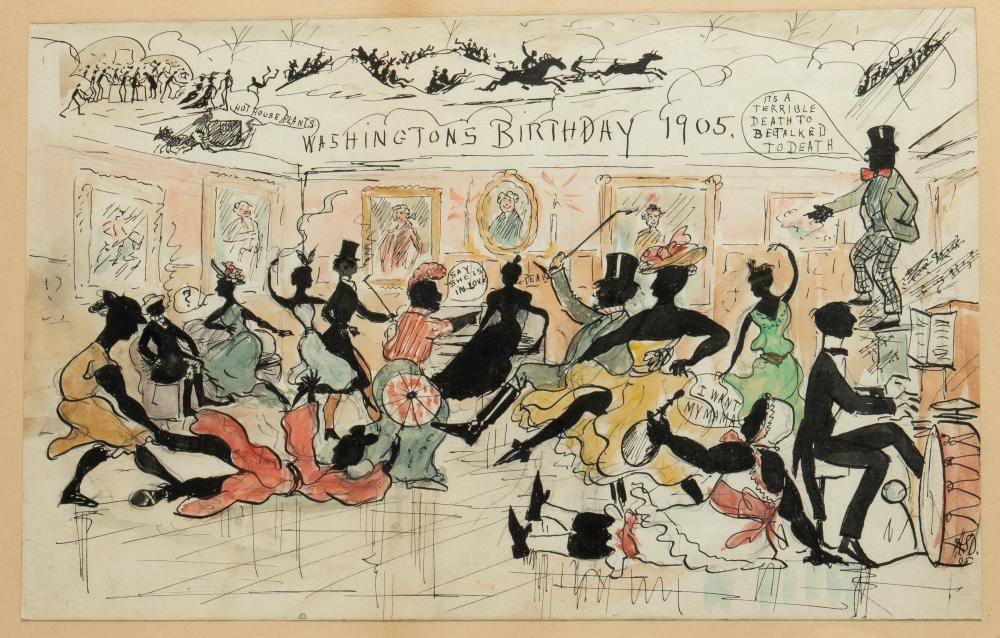 HOT HOUSE PLANTS
WASHINGTONS BIRTHDAY 1905.
ITS A
TERRIBLE
DEATH TO
BE TALKED
TO DEATH
?
SAY
SHE IS
IN LOVE
I WANT
MY MAMA